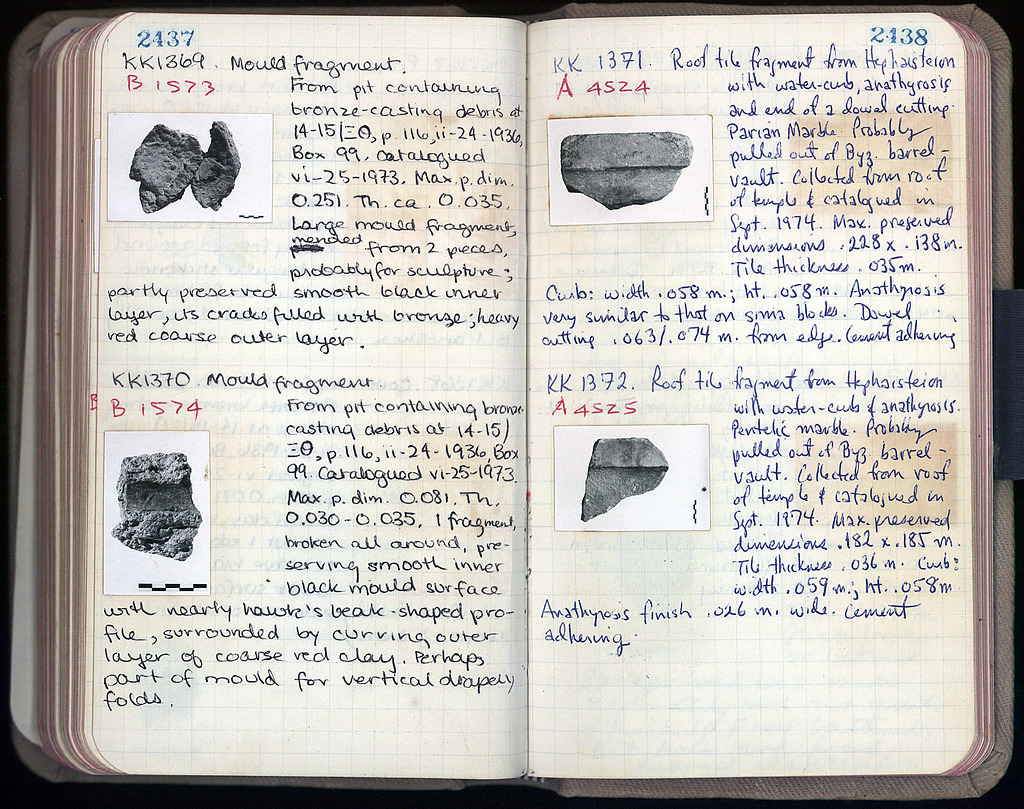 2437
KK1369. Mould fragment.
B 1573
From pit containing
bronze-casting debris at
14-15/ΞΘ, p. 116, ii-24-1936,
Box 99. Catalogued
vi-25-1973. Max. p. dim.
0.251. Th. ca. 0.035.
Large mould fragment,
mended from 2 pieces,
probably for sculpture;
partly preserved smooth black inner
layer, its cracks filled with bronze; heavy
red coarse outer layer.
KK1370. Mould fragment.
B B 1574
From pit containing bronze-
casting debris at 14-15/
ΞΘ, p. 116, ii-24-1936, Box
99. Catalogued vi-25-1973.
Max. p. dim. 0.081. Th.
0.030-0.035. 1 fragment,
broken all around, pre-
serving smooth inner
black mould surface
with nearly hawk's beak-shaped pro-
file, surrounded by curving outer
layer of coarse red clay. Perhaps
part of mould for vertical drapery
folds.
2438
KK 1371. Roof tile fragment from Hephaisteion
A 4524
with water-curb, anathyrosis
and end of a dowel cutting.
Parian Marble. Probably
pulled out of Byz. barrel-
vault. Collected from roof
of temple & catalogued in
Sept. 1974. Max. preserved
dimensions .228 x .138 m.
Tile thickness .035 m.
Curb: width .058 m.; ht. .058 m. Anathyrosis
very similar to that on sima blocks. Dowel
cutting .063/.074 m. from edge. Cement adhering
KK 1372. Roof tile fragment from Hephaisteion
A 4525
with water-curb & anathyrosis.
Pentelic marble. Probably
pulled out of Byz. barrel-
vault. Collected from roof
of temple & catalogued in
Sept. 1974. Max. preserved
dimensions .182 x .185 m.
Tile thickness .036 m. Curb:
width .059 m.; ht. .058 m
Anathyrosis finish .026 m. wide. Cement
adhering.